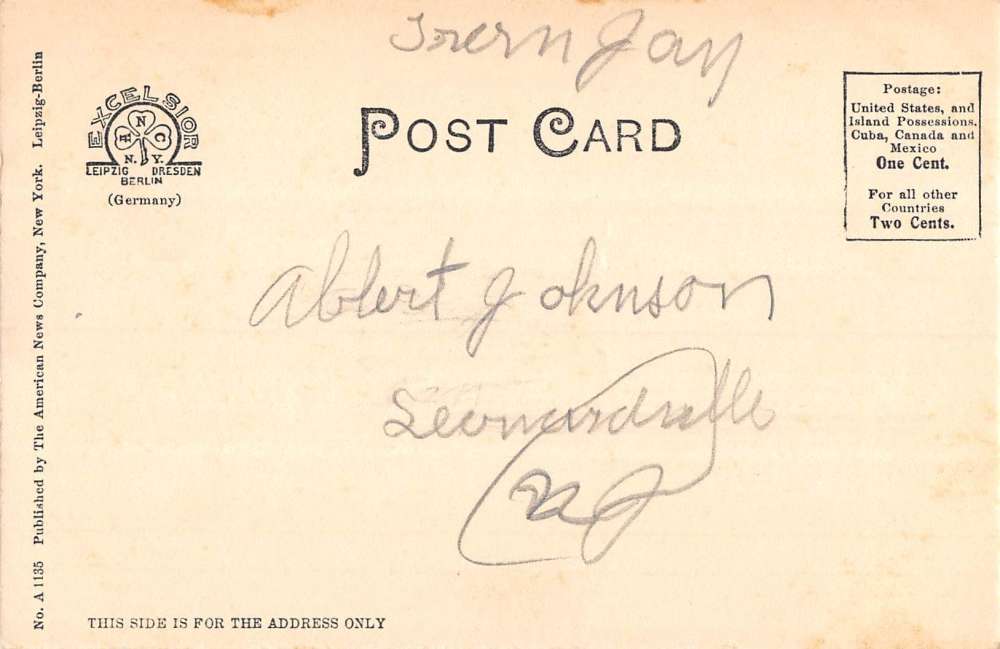 From Jay
POST CARD
EXCELSIOR
A N C
N. Y.
LEIPZIG DRESDEN
BERLIN
(Germany)
Postage:
United States, and
Island Possessions.
Cuba, Canada and
Mexico
One Cent.
For all other
Countries
Two Cents.
Ablert Johnson
Leonardville
N J
THIS SIDE IS FOR THE ADDRESS ONLY
No. A 1135 Published by The American News Company, New York. Leipzig-Berlin